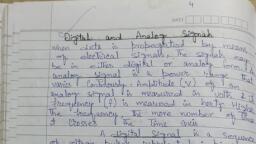 4
DATE
Digital and Analog Signals
when data is propagated by means
of electrical signals. The signals may
be in either digital or analog form.
analog signal is a power change that
varies continuously. Amplitude (V)
analog signal is measured in volts &
frequency (f) is measured in hertz. Higher
the frequency, the more number of
it crosses the Time axis
A digital signal is a sequence
of